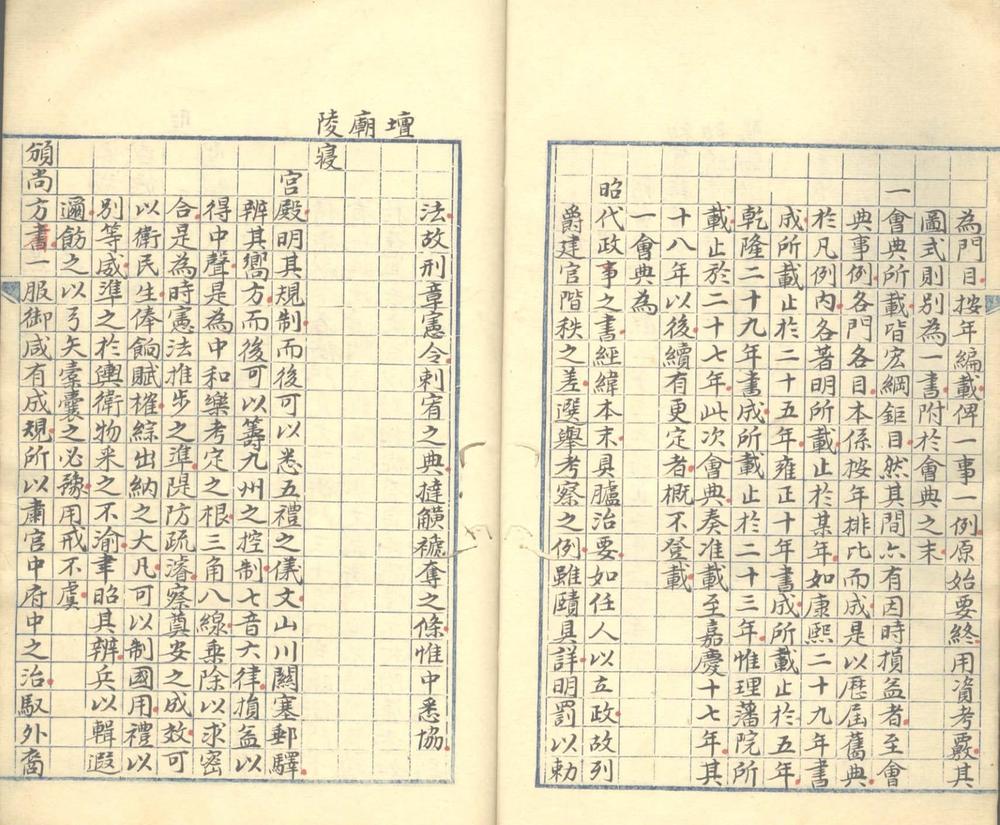 為門目按年編載俾一事一例原始要終用資考覈其
圖式則別為一書附於會典之末
一會典所載皆宏綱鉅目然其間亦有因時損益者至會
典事例各門各目本係按年排比而成是以歷屆舊典
於凡例內各著明所載止於某年如康熙二十九年書
成所載止於二十五年雍正十年書成所載止於五年
乾隆二十九年書成所載止於二十三年惟理藩院所
載止於二十七年此次會典奏准載至嘉慶十七年其
十八年以後續有更定者概不登載
一會典為
昭代政事之書經緯本末具臚治要如任人以立政故列
爵建官階秩之差選舉考察之例雖賾具詳明罰以勅
法故刑章憲令剌宥之典撻黷褫奪之條惟中悉協
壇
廟
陵寢
宮殿明其規制而後可以悉五禮之儀文山川關塞郵驛
辨其嚮方而後可以籌九州之控制七音六律損益以
得中聲是為中和樂考定之根三角八線乘除以求密
合是為時憲法推步之準隄防疏濬察奠安之成效可
以衛民生俸餉賦榷綜出納之大凡可以制國用禮以
別等威準之於輿衛物采之不渝聿昭其辨兵以輯遐
邇飭之以弓矢櫜囊之必豫用戒不虞
頒尚方書一服御咸有成規所以肅宮中府中之治馭外裔